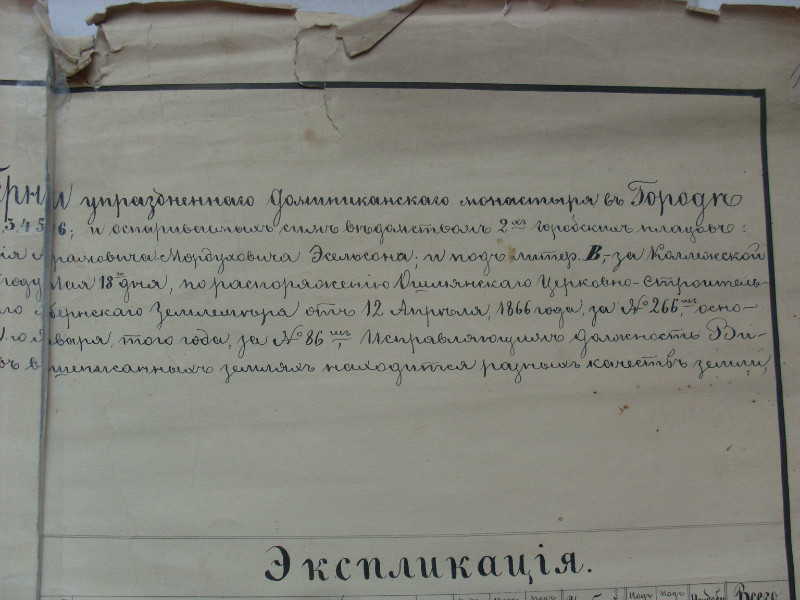 упраздненнаго Доминиканскаго монастыря въ Городѣ
3, 4, 5, и 6; и оспариваемыхъ симъ вѣдомствомъ 2хъ городскихъ плацовъ:
Мордуховича Эсельсона; и подъ литер. В,- за Коллежской
году Мая 18го дня, по распоряженію Ошмянскаго Церковно-Строитель-
Землемѣра отъ 12 Апрѣля, 1866 года, за № 266мъ, осно-
того года, за № 86мъ, Исправляющимъ должность Ви-
вышеписанныхъ земляхъ находится разныхъ качествъ земли,
Экспликація.
Подъ Подъ Всего